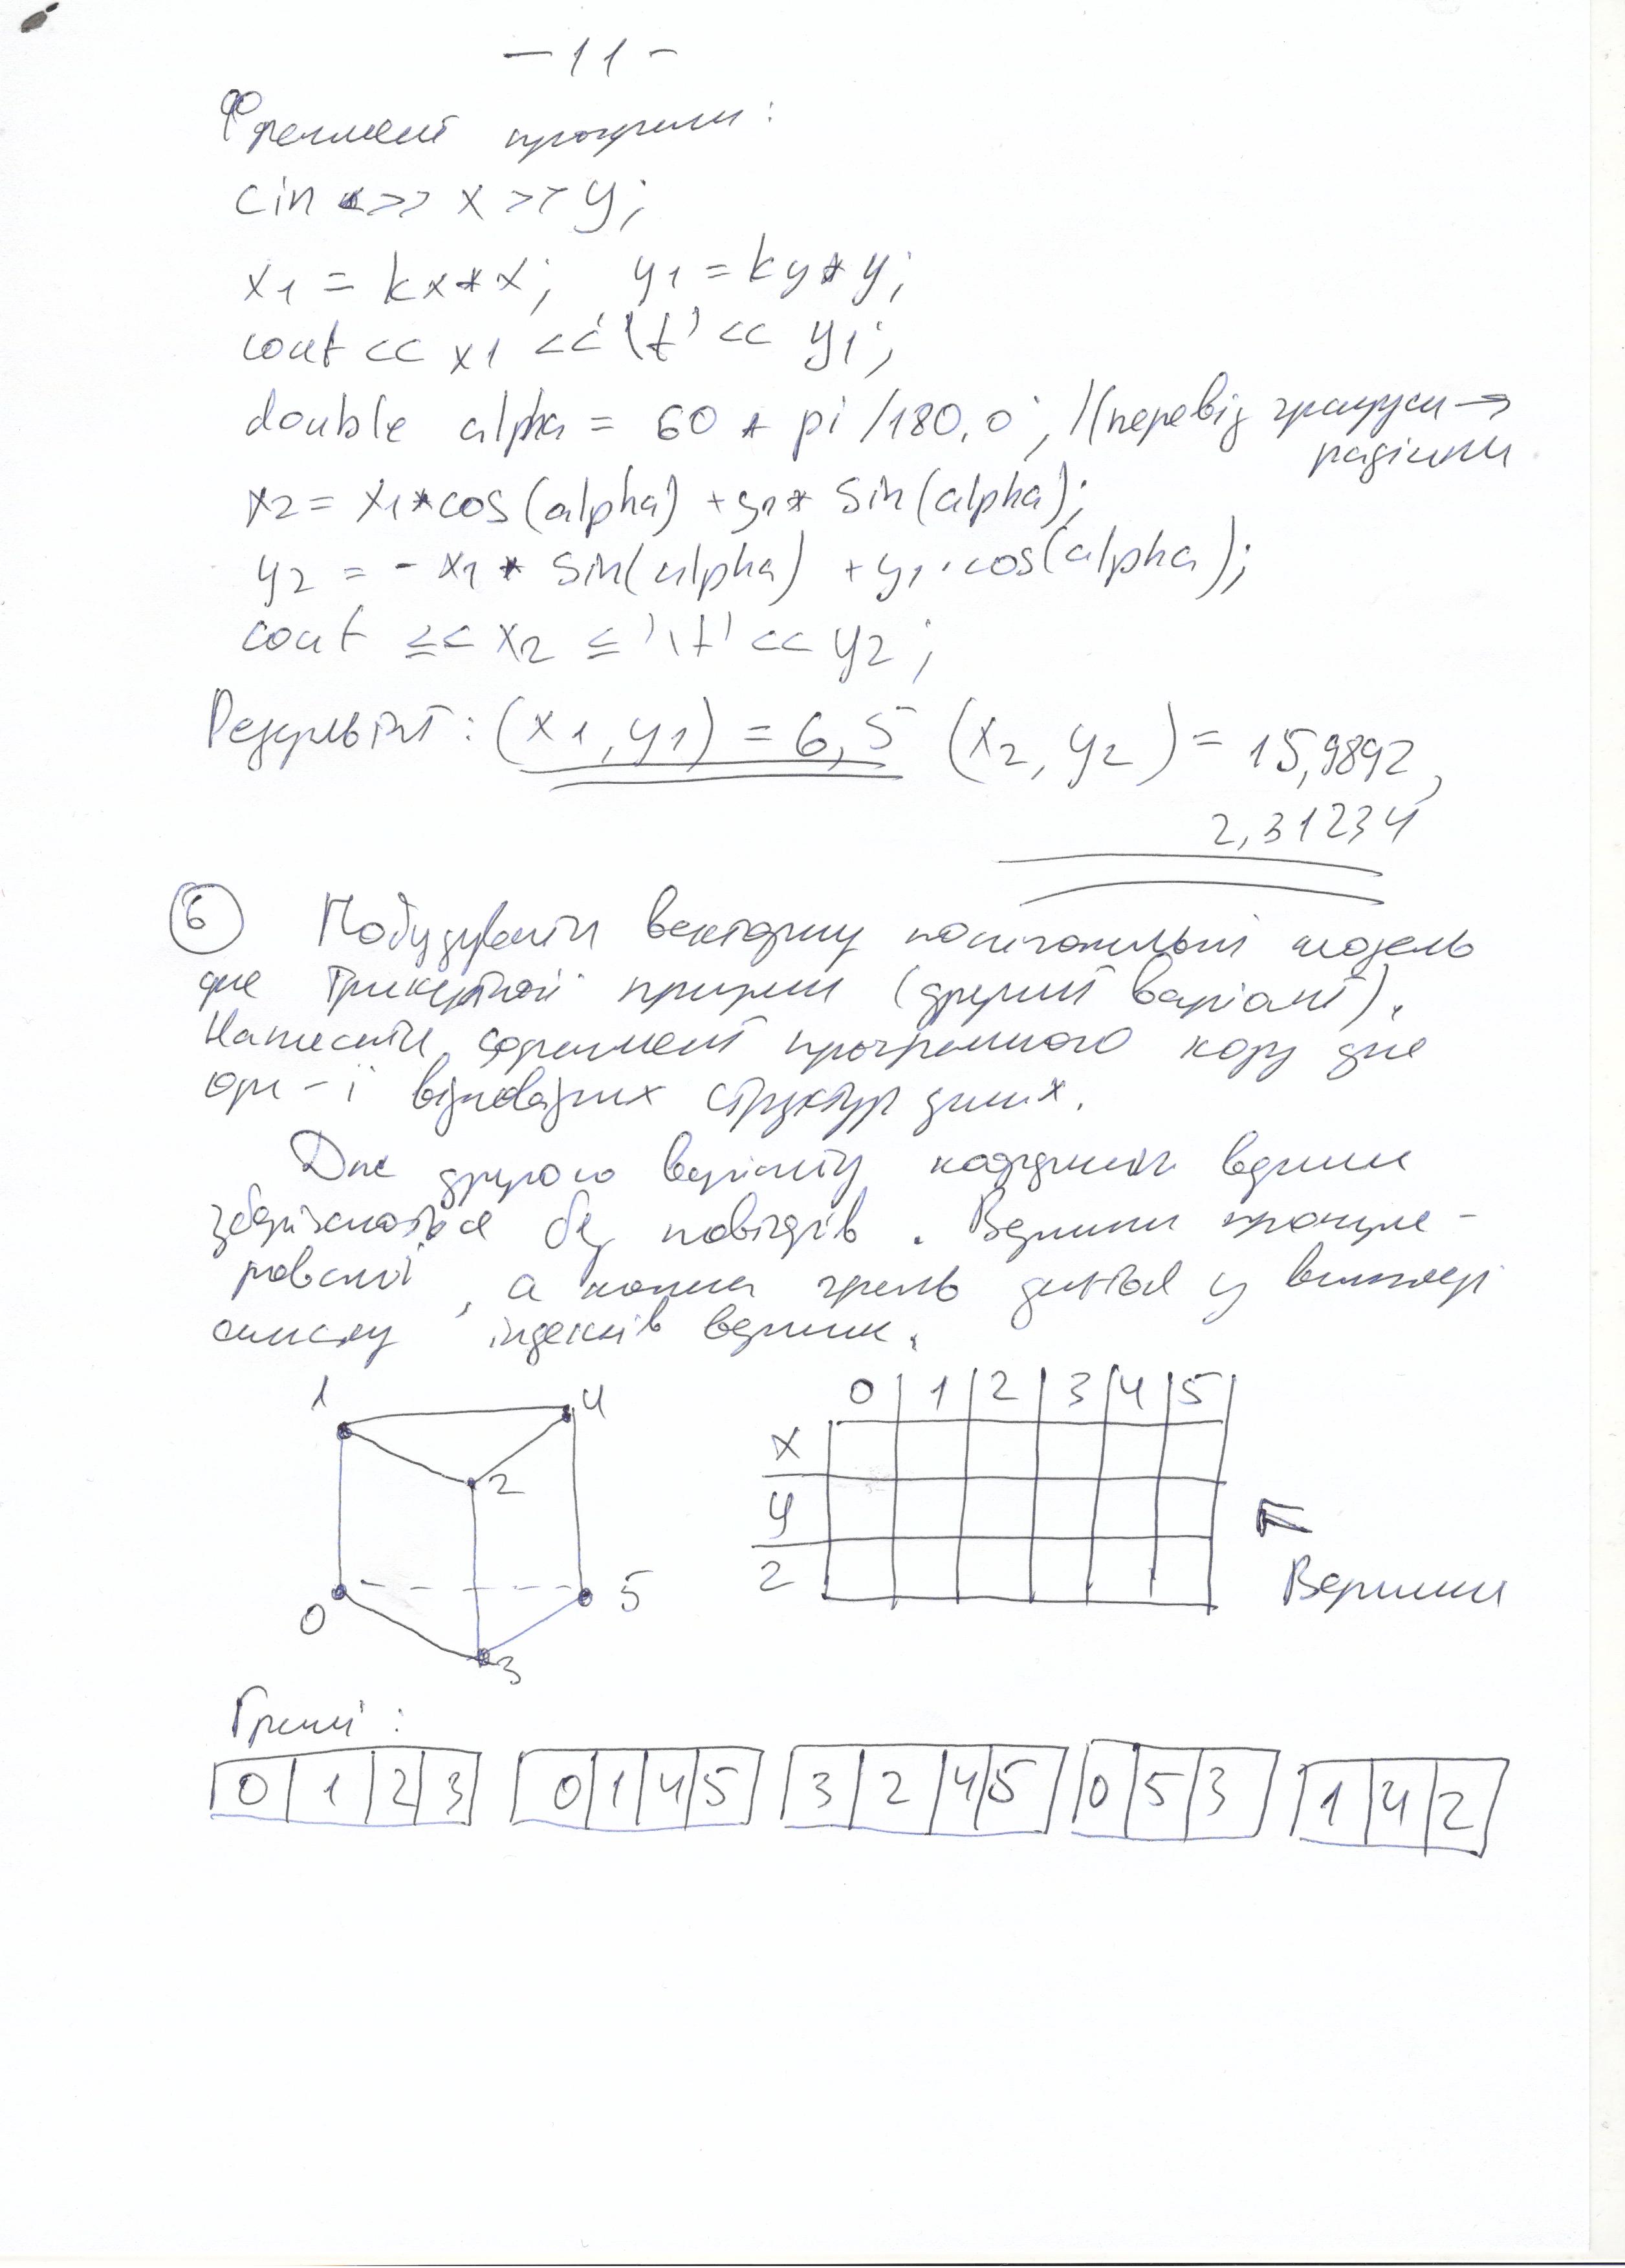 – 11 –
Фрагмент програми:
cin >> x >> y;
x1 = kx * x; y1 = ky * y;
cout << x1 << '\t' << y1;
double alpha = 60 * pi / 180.0; // перевід градуси →
радіани
x2 = x1 * cos(alpha) + y1 * sin(alpha);
y2 = - x1 * sin(alpha) + y1 · cos(alpha);
cout << x2 << '\t' << y2;
Результат: (x1, y1) = 6, 5 (x2, y2) = 15,9892,
2,31234
6 Побудувати векторну полігональну модель
для трикутної призми (другий варіант).
Написати фрагмент програмного коду для
ор-ї відповідних структур даних.
Для другого варіанту координати вершин
зберігаються без повторів. Вершини пронуме-
ровані, а кожна грань дається у вигляді
списку індексів вершин.
1 4
2
0 5
3
0 1 2 3 4 5
x
y
z
Вершини
Грані:
0 1 2 3 0 1 4 5 3 2 4 5 0 5 3 1 4 2